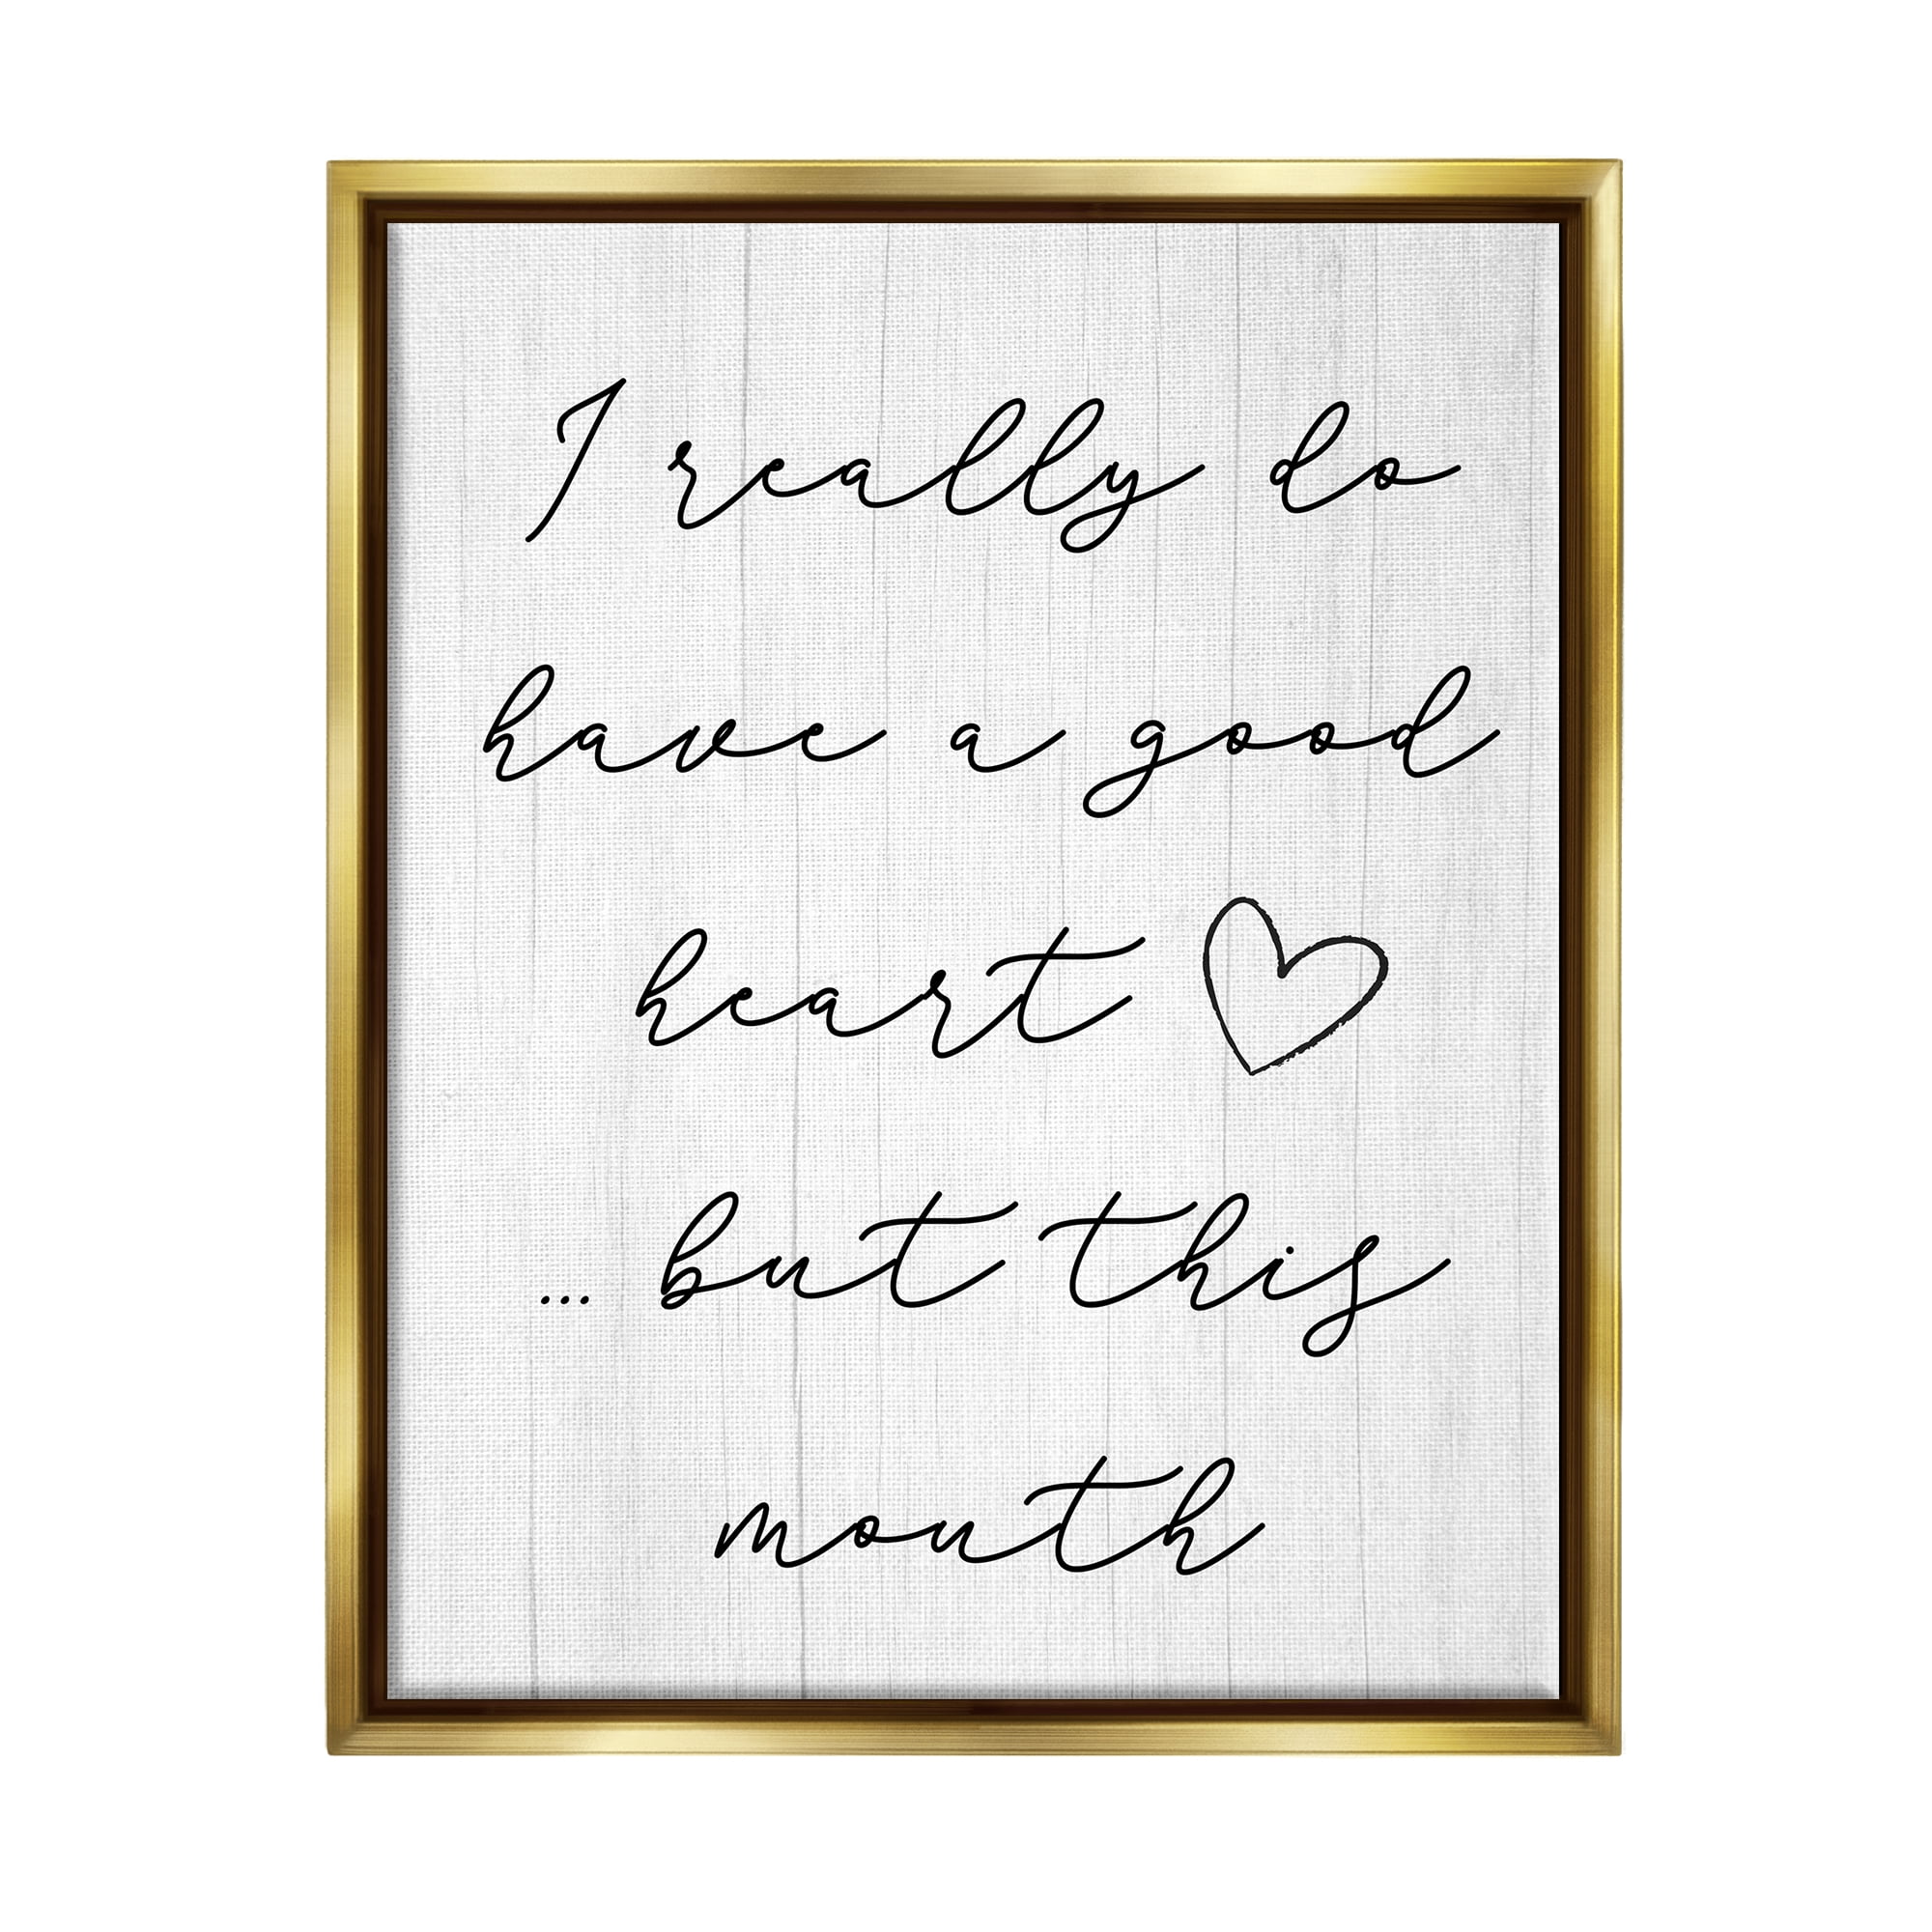 I really do
have a good
heart
... but this
mouth